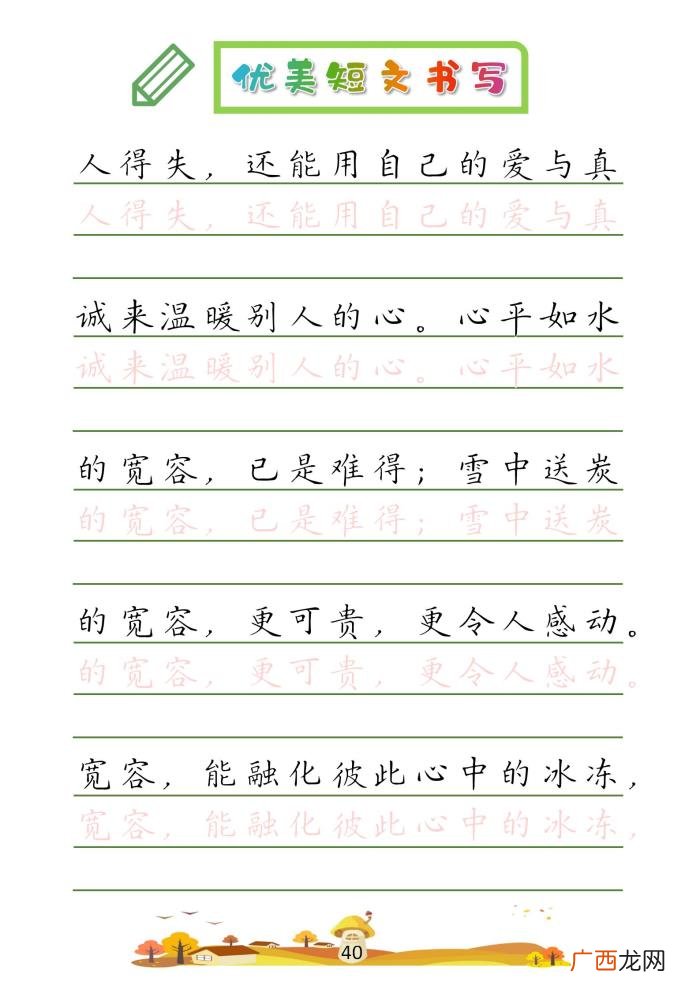 优美短文书写
人得失，还能用自己的爱与真
人得失，还能用自己的爱与真
诚来温暖别人的心。心平如水
诚来温暖别人的心。心平如水
的宽容，已是难得；雪中送炭
的宽容，已是难得；雪中送炭
的宽容，更可贵，更令人感动。
的宽容，更可贵，更令人感动。
宽容，能融化彼此心中的冰冻，
宽容，能融化彼此心中的冰冻，
40
广西龙网